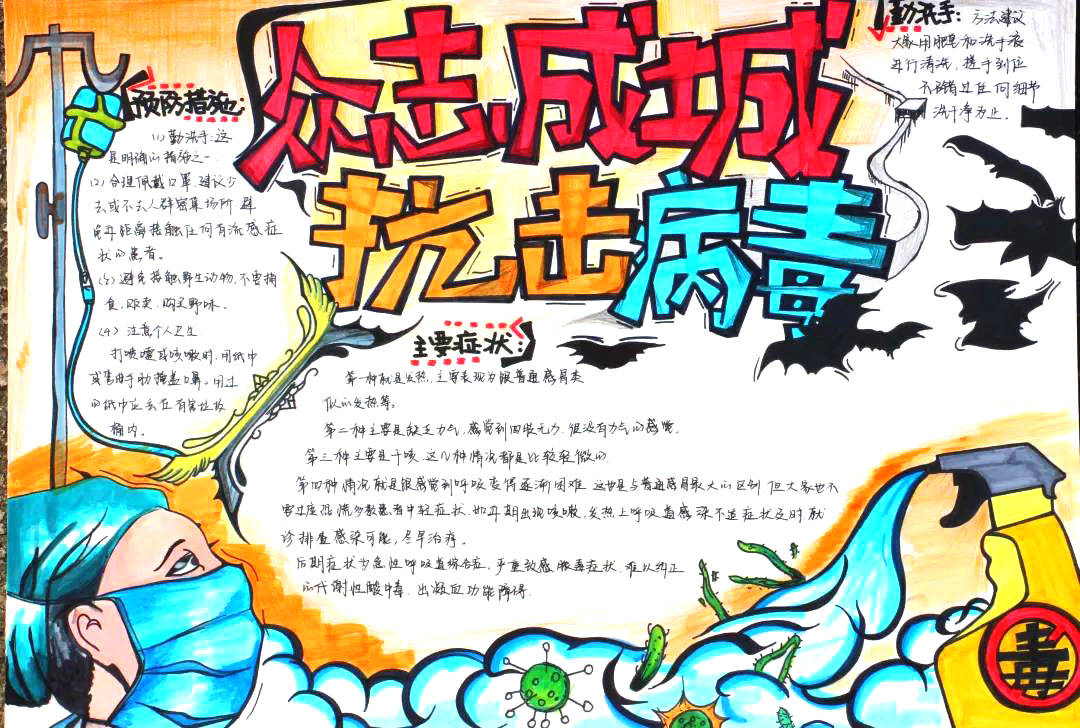 众志成城
抗击病毒
勤洗手：方法建议
大家用肥皂和洗手液
进行清洗，搓手到位
不错过任何细节
洗干净为止。
预防措施：
(1) 勤洗手：这
是明确的措施之一
(2) 合理佩戴口罩，建议少
去或不去人群密集场所 避
免近距离接触任何有流感症
状的患者。
(3) 避免接触野生动物，不要捕
食，贩卖，购买野味。
(4) 注意个人卫生
打喷嚏或咳嗽时，用纸巾
或弯曲手肘掩盖口鼻。用过
的纸巾应丢在有害垃圾
桶内。
主要症状：
第一种就是发热，主要表现为跟普通感冒类
似的发热等。
第二种主要是缺乏力气，感觉到四肢无力，很没有力气的感觉。
第三种主要是干咳，这几种情况都是比较轻微的
第四种情况就是很感觉到呼吸变得逐渐困难 这也是与普通感冒最大的区别 但大家也不
要过度恐慌多数患者中轻症状，如早期出现咳嗽，发热上呼吸道感染不适症状及时就
诊排查感染可能，尽早治疗。
后期症状少急性呼吸道综合症，严重致感脓毒症状，难以纠正
的代谢性酸中毒，出凝血功能障碍
毒